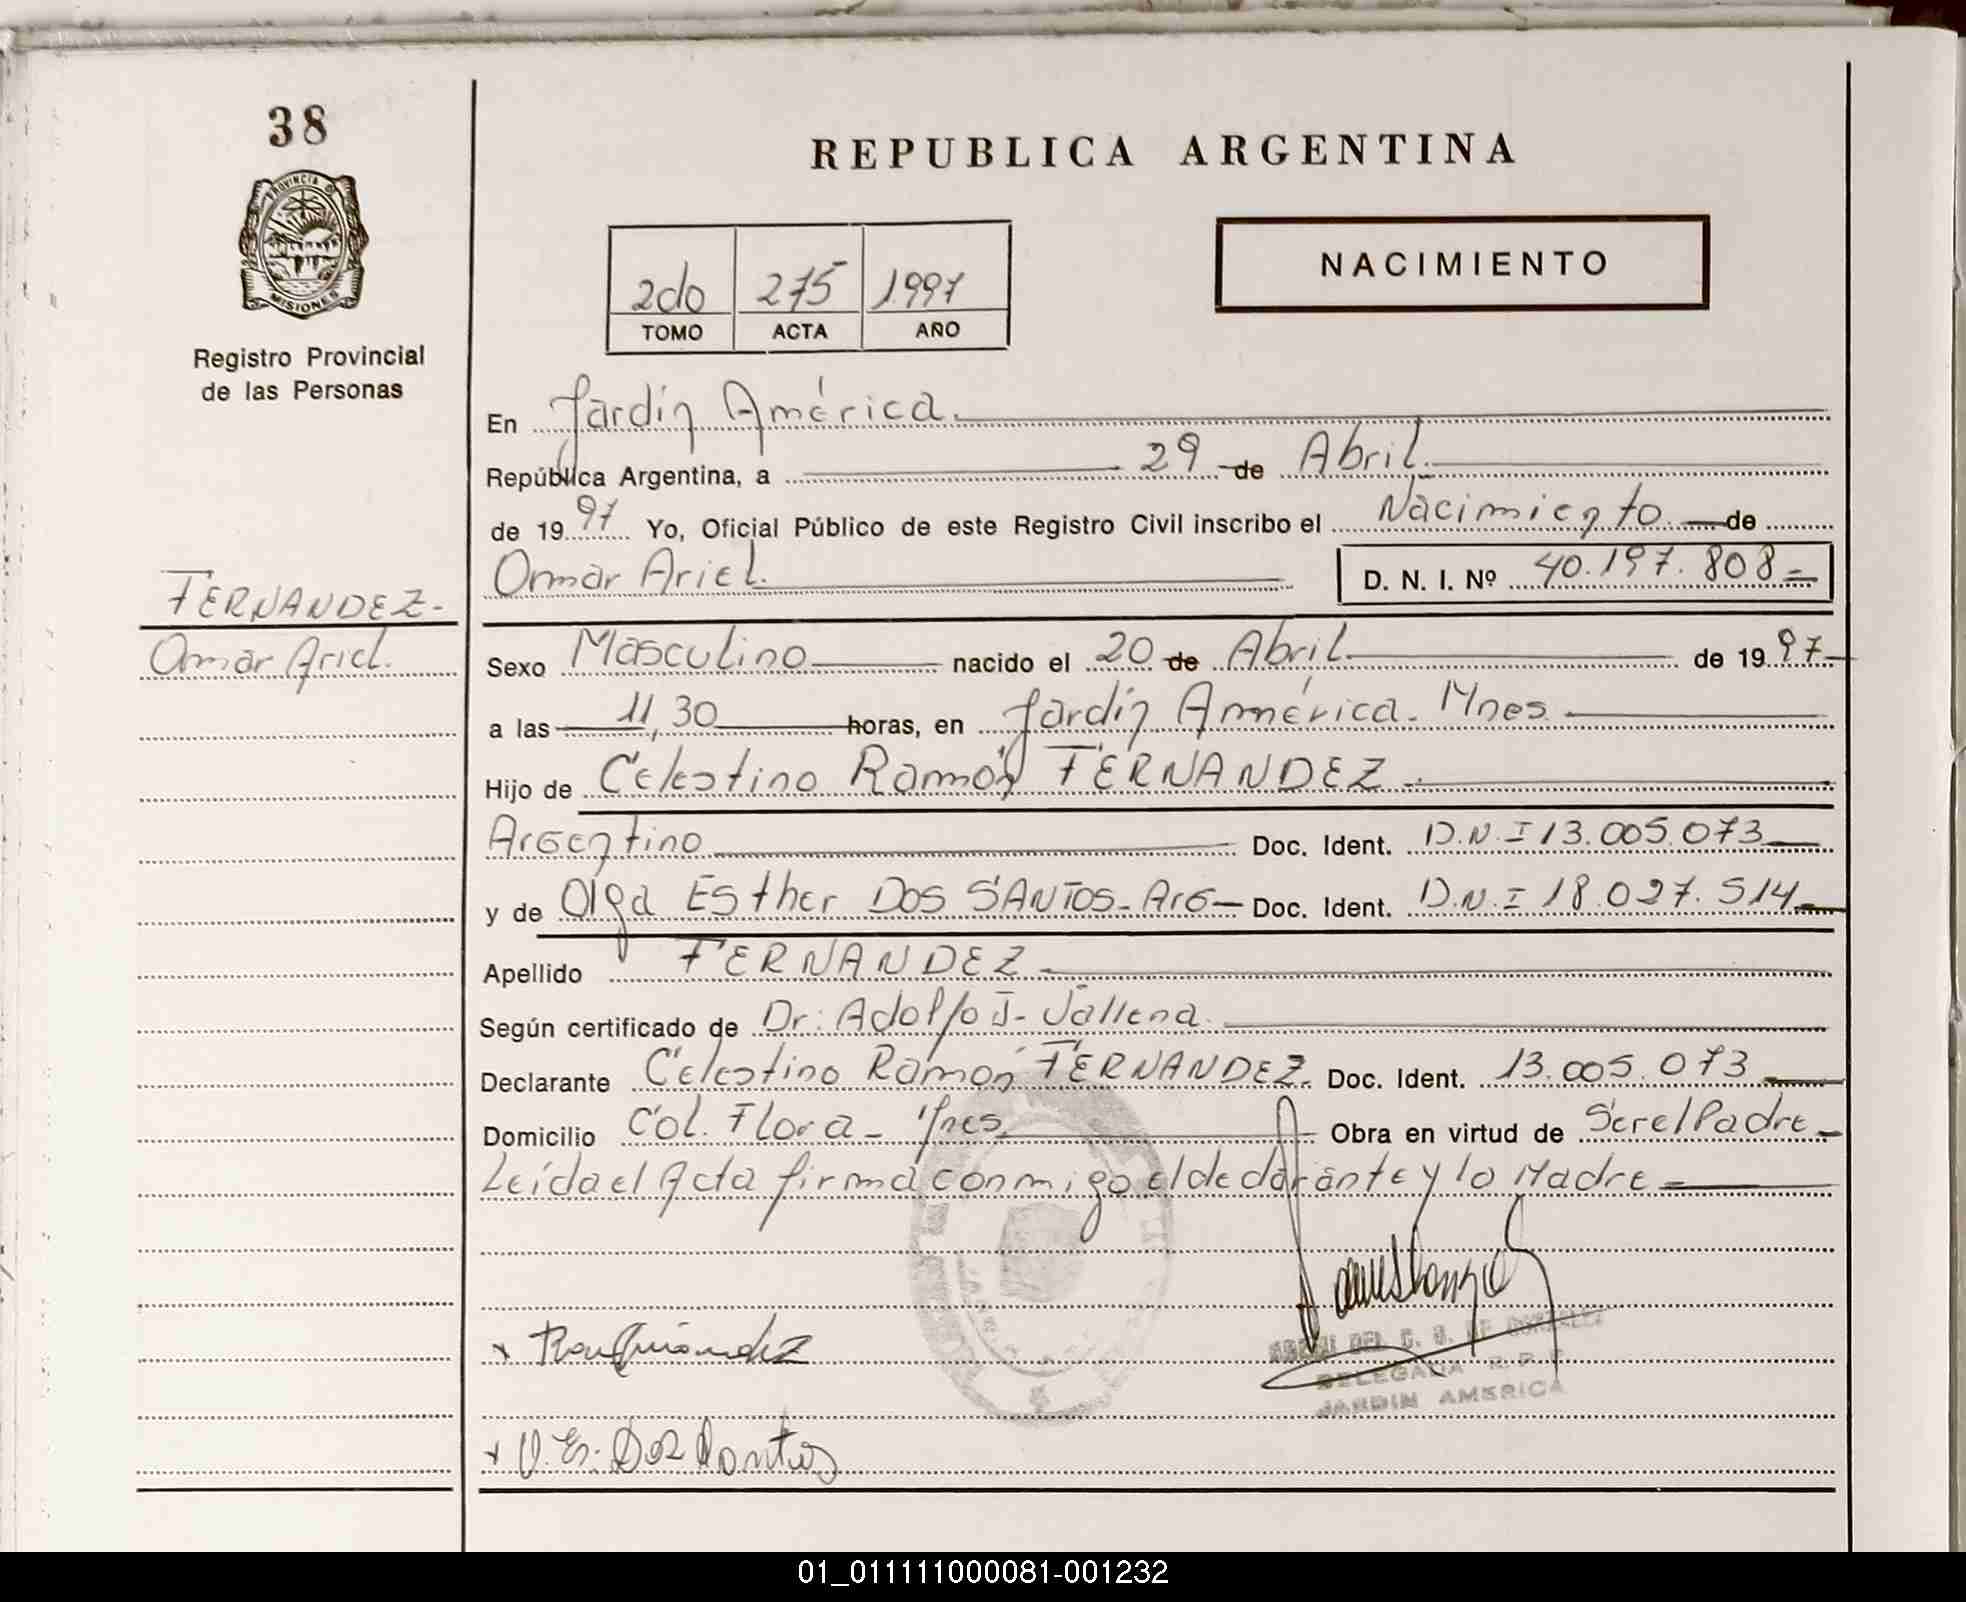 38
PROVINCIA DE
MISIONES
Registro Provincial
de las Personas
FERNANDEZ-
Omar Ariel.
REPUBLICA ARGENTINA
2do 275 1.997
TOMO ACTA AÑO
NACIMIENTO
En Jardín América.
República Argentina, a 29 de Abril.
de 1997 Yo, Oficial Público de este Registro Civil inscribo el Nacimiento de
Omar Ariel. D. N. I. Nº 40.197.808-
Sexo Masculino nacido el 20 de Abril de 1997
a las 11,30 horas, en Jardín América. Mnes.
Hijo de Celestino Ramón FERNANDEZ
Argentino Doc. Ident. D.N.I 13.005.073
y de Olga Esther DOS SANTOS-Arg- Doc. Ident. D.N.I 18.027.514
Apellido FERNANDEZ
Según certificado de Dr: Adolfo J.
Declarante Celestino Ramón FERNANDEZ. Doc. Ident. 13.005.073
Domicilio Col. Flora- Mnes. Obra en virtud de Ser el Padre-
Leída el Acta firma conmigo el declarante y la Madre
DEL C. B. DE GONZALEZ
DELEGADA R. P. P.
JARDIN AMERICA
Dos Santos
01_011111000081-001232